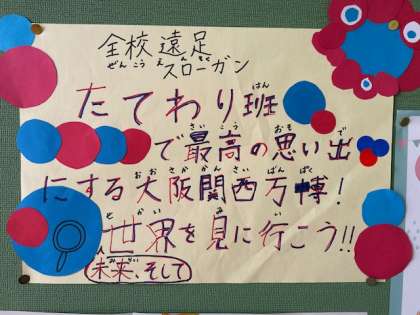 全校遠足
ぜんこうえんそく
スローガン
はん
たてわり班
さいこう おも で
で最高の思い出
おおさかかんさいばんぱく
にする大阪関西万博!
かい み い
世界を見に行こう!!
みらい
未来、そして